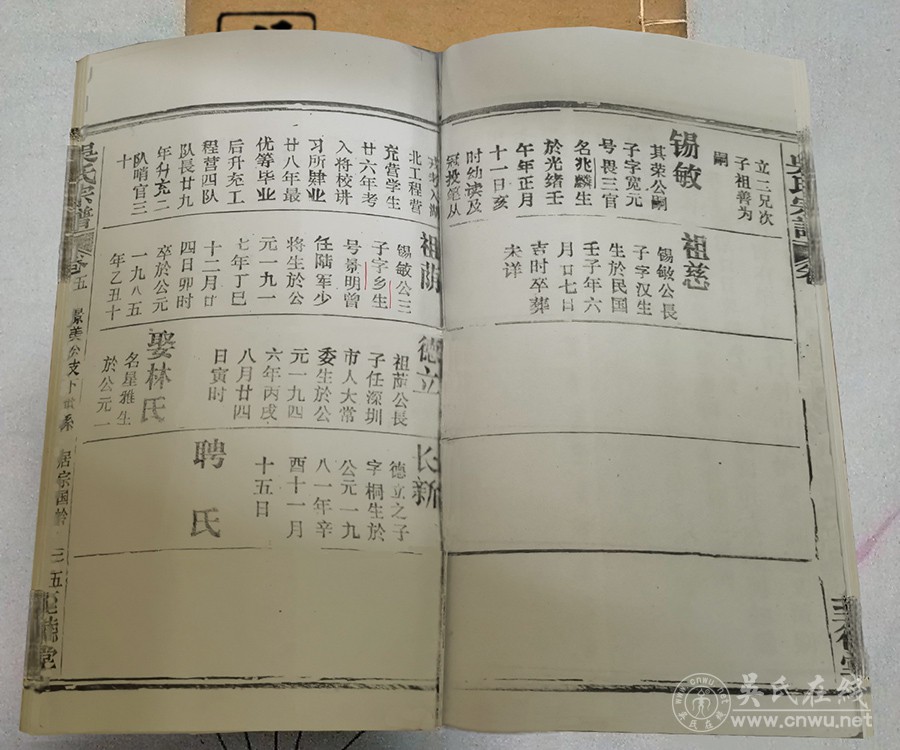 吳氏宗譜
立二兄次
子祖善为
嗣
锡敏
其荣公嗣
子字宽元
号畏三官
名兆麟生
於光緒壬
午年正月
十一日亥
时幼读及
冠投笔从
祖慈
锡敏公長
子字汉生
生於民国
壬子年六
月廿七日
吉时卒葬
未详
戎考入湖
北工程营
充营学生
廿六年考
入将校讲
习所肄业
廿八年最
优等毕业
后升充工
程营四队
队長廿九
年升充二
队哨官三
十
祖荫
锡敏公三
子字乡生
号景明曾
任陆军少
将生於公
元一九一
七年丁巳
十二月廿
四日卯时
卒於公元
一九八五
年乙丑十
德立
祖荫公長
子任深圳
市人大常
委生於公
元一九四
六年丙戌
八月廿四
日寅时
娶林氏
名星雅生
於公元一
长新
德立之子
字桐生於
公元一九
八一年辛
酉十一月
十五日
聘氏
吳氏宗譜 卷五 公支下世系 居宗国岭 三五 至德堂
吴氏在线
www.cnwu.net